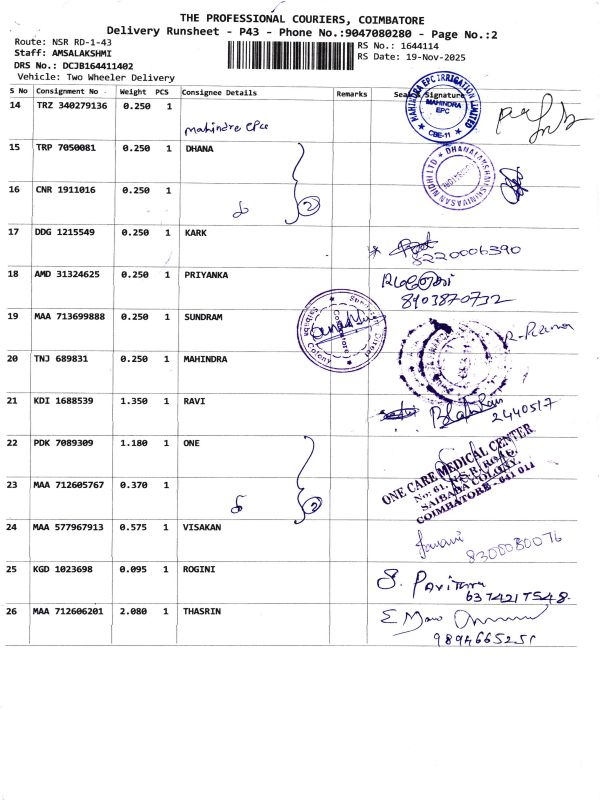 THE PROFESSIONAL COURIERS, COIMBATORE
Delivery Runsheet - P43 - Phone No.:9047080280 - Page No.:2
Route: NSR RD-1-43
Staff: AMSALAKSHMI
DRS No.: DCJB164411402
Vehicle: Two Wheeler Delivery
RS No.: 1644114
RS Date: 19-Nov-2025
S No Consignment No Weight PCS Consignee Details Remarks Seal / Signature
14 TRZ 340279136 0.250 1
mahindre epce
MAHINDRA EPC IRRIGATION LIMITED
MAHINDRA
EPC
CBE-11
15 TRP 7050081 0.250 1 DHANA
DHANALAKSHMI SRINIVASAN NIDHI LTD
16 CNR 1911016 0.250 1
2
17 DDG 1215549 0.250 1 KARK
8220006390
18 AMD 31324625 0.250 1 PRIYANKA
8903870732
19 MAA 713699888 0.250 1 SUNDRAM
Coimbatore
Colony
20 TNJ 689831 0.250 1 MAHINDRA
21 KDI 1688539 1.350 1 RAVI
2440517
22 PDK 7089309 1.180 1 ONE
ONE CARE MEDICAL CENTER
No: 61, N.S.R. ROAD,
SAIBABA COLONY,
COIMBATORE - 641 011
23 MAA 712605767 0.370 1
2
24 MAA 577967913 0.575 1 VISAKAN
8300030076
25 KGD 1023698 0.095 1 ROGINI
S. Pavitra
6374217548
26 MAA 712606201 2.080 1 THASRIN
9894665251